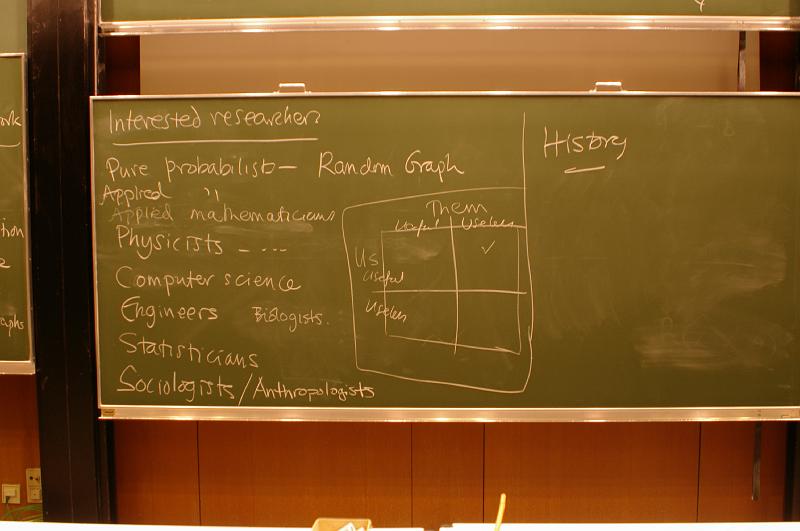 Interested researchers
Pure probabilist — Random Graph
Applied "
Applied mathematicians
Physicists - ---
Computer science
Engineers Biologists.
Statisticians
Sociologists/Anthropologists
Them
Useful Useless
Us
Useful
✓
Useless
History
ork
tion
e
aphs